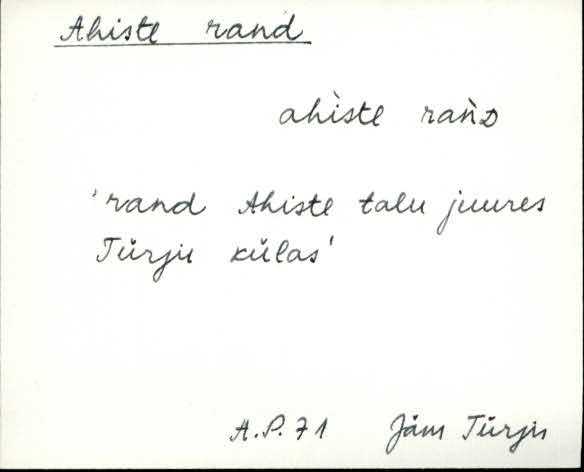 Ahiste rand
ahìste rań̀ᴅ
'rand Ahiste talu juures
Türju külas'
A.P. 71 Jäm Türju